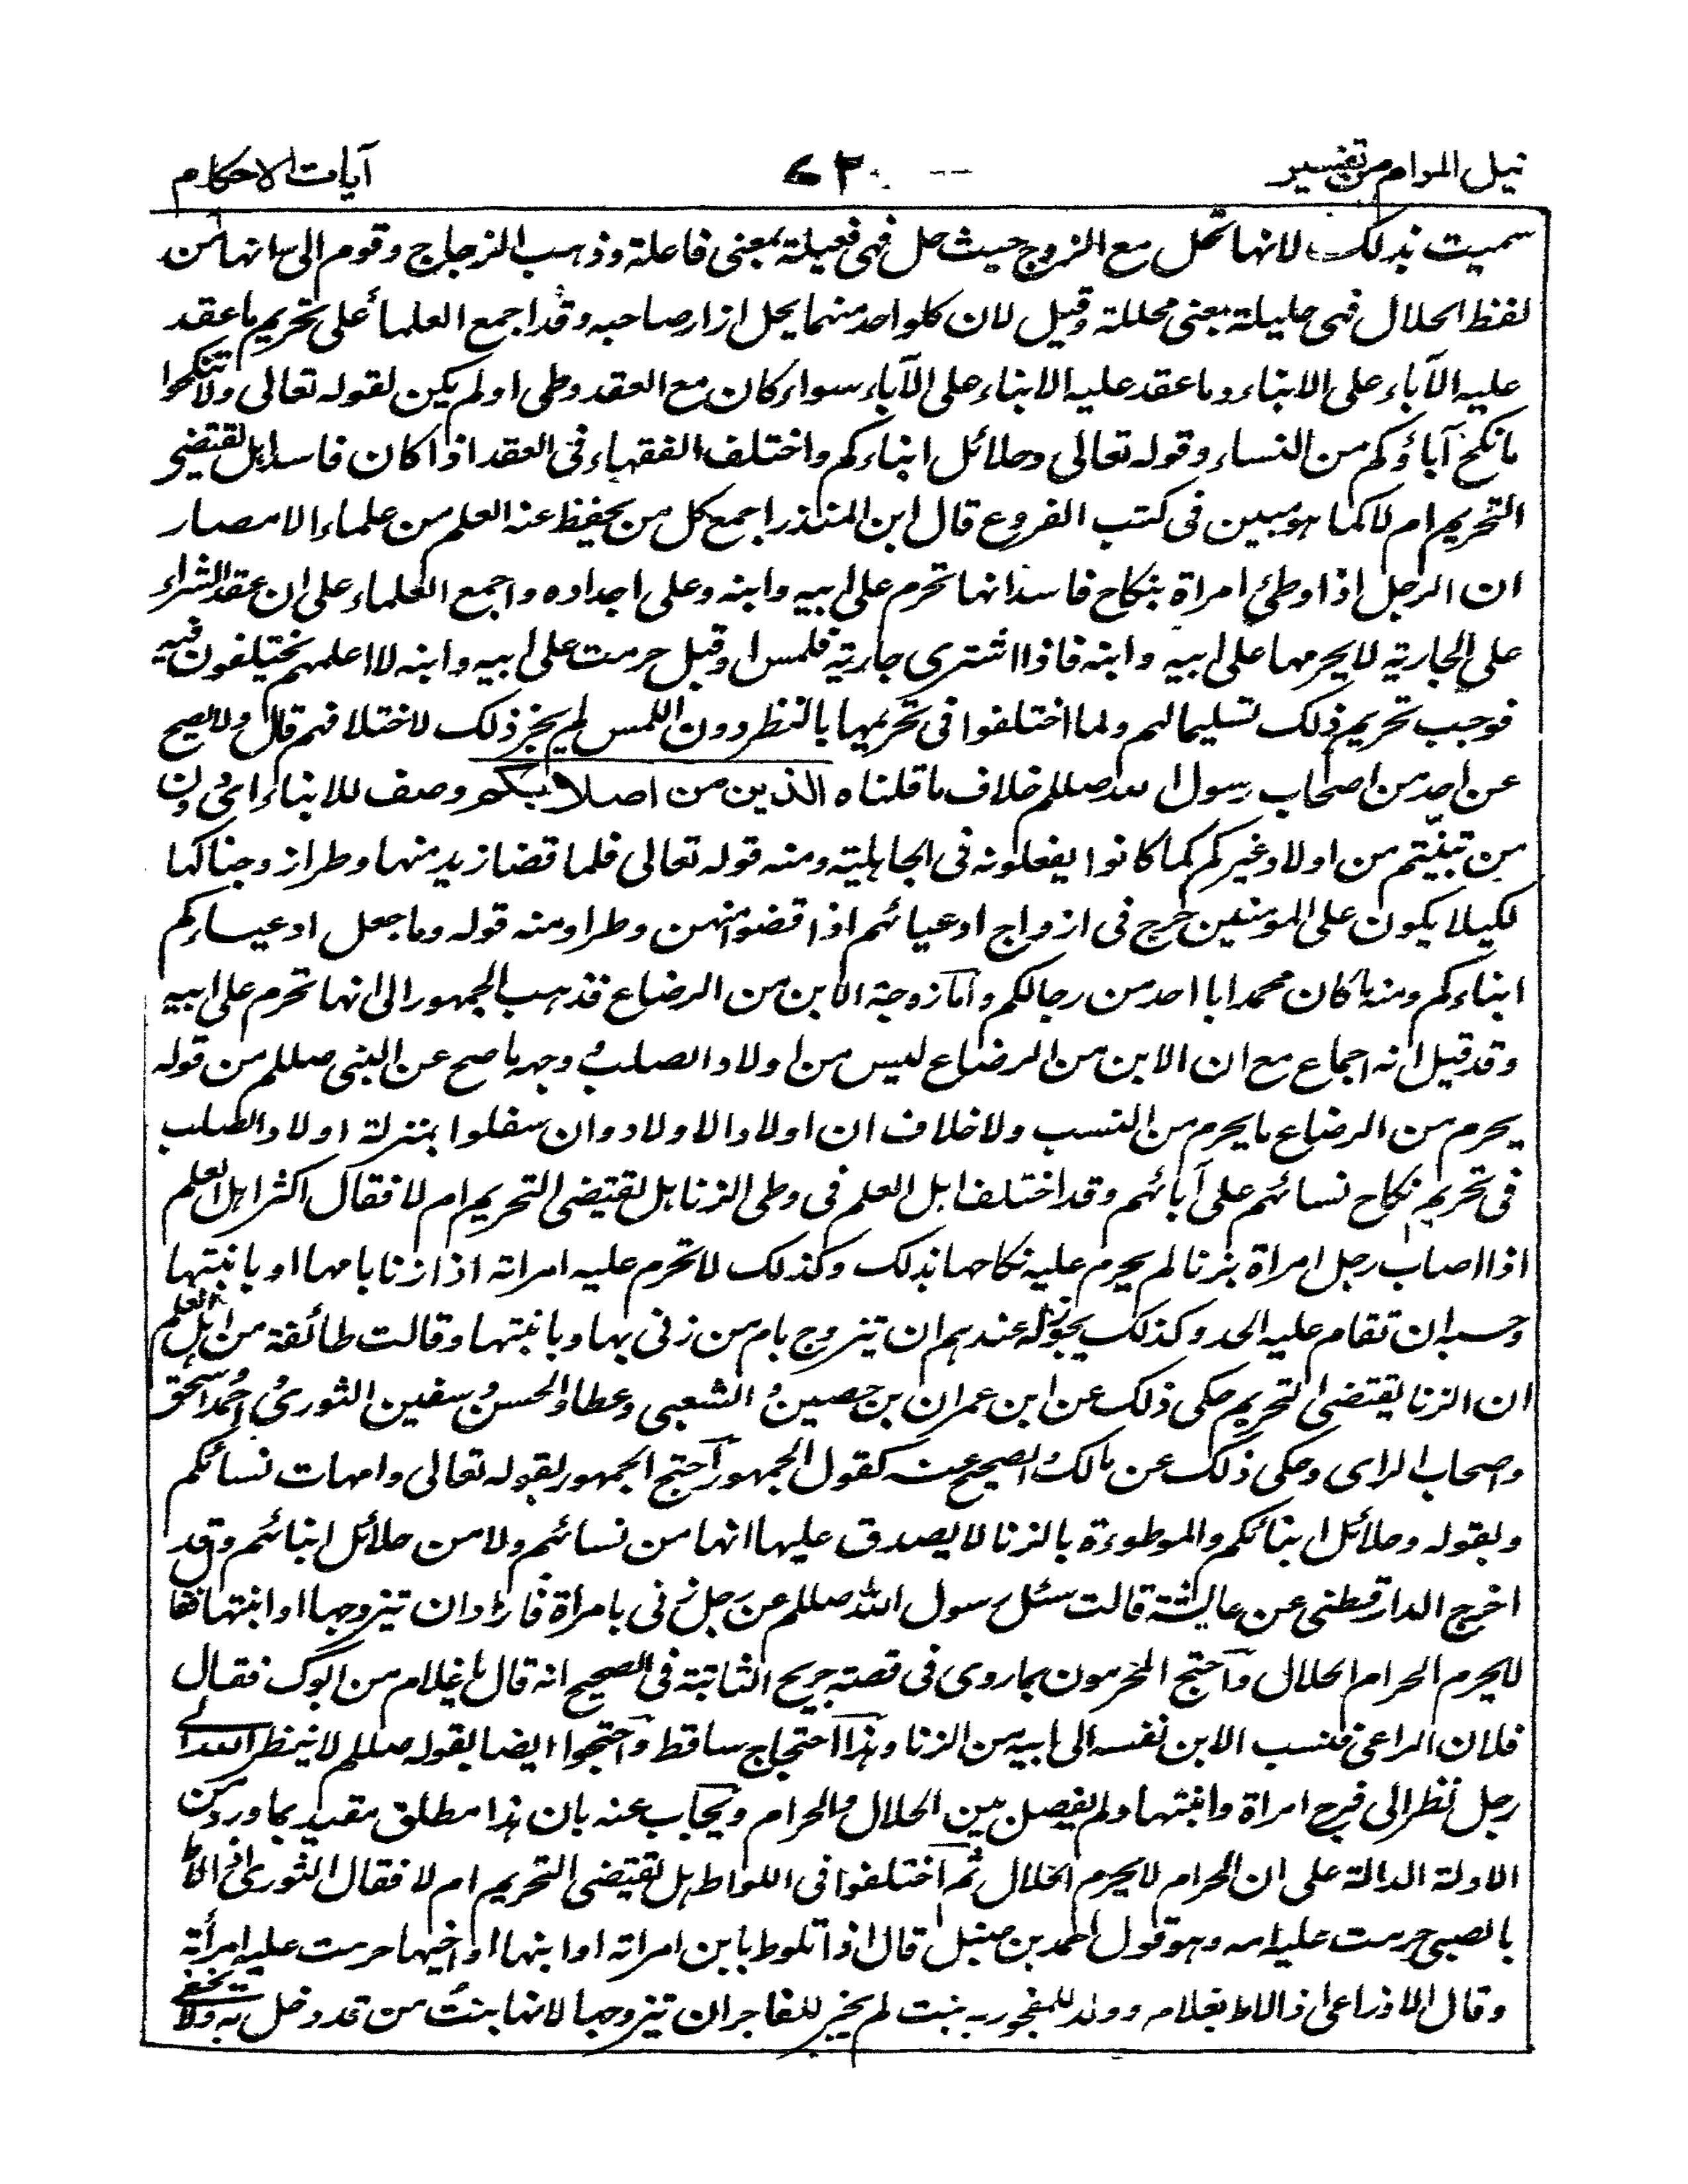 نيل المرام من تفسير
آيات الاحكام
سميت بذلك لانها تحل مع الزوج حيث حل فهى فعيلة بمعنى فاعلة وذهب الزجاج وقوم الى انها من
لفظ الحلال فهى حليلة بمعنى محللة وقيل لان كلواحد منهما يحل ازار صاحبه وقد اجمع العلماء على تحريم ما عقد
عليه الآباء على الابناء وما عقد عليه الابناء على الآباء سواء كان مع العقد وطى او لم يكن لقوله تعالى ولا تنكحوا
ما نكح آباؤكم من النساء وقوله تعالى وحلائل ابناءكم واختلف الفقهاء فى العقد اذا كان فاسدا هل تقتضى
التحريم ام لا كما هو مبين فى كتب الفروع قال ابن المنذر اجمع كل من يحفظ عنه العلم من علماء الامصار
ان الرجل اذا وطئ امراة بنكاح فاسد انها تحرم على ابيه وابنه وعلى اجداده واجمع العلماء على ان عقد الشراء
على الجارية لا يحرمها على ابيه وابنه فاذا اشترى جارية فلمس او قبل حرمت على ابيه وابنه لا اعلمهم يختلفون فيه
فوجب تحريم ذلك تسليما لهم ولما اختلفوا فى تحريمها بالنظر دون اللمس لم يجز ذلك لاختلافهم قال ولا يصح
عن احد من اصحاب رسول الله صللم خلاف ما قلناه الذين من اصلابكم وصف للابناء اى دون
من تبنيتم من اولاد غيركم كما كانوا يفعلونه فى الجاهلية ومنه قوله تعالى فلما قضا زيد منها وطرا زوجناكها
لكيلا يكون على المؤمنين حرج فى ازواج ادعيائهم اذا قضوا منهن وطرا ومنه قوله وما جعل ادعياءكم
ابناءكم ومنه ما كان محمد ابا احد من رجالكم واما زوجة الابن من الرضاع فذهب الجمهور الى انها تحرم على ابيه
وقد قيل انه اجماع مع ان الابن من الرضاع ليس من اولاد الصلب وجهه ما صح عن النبى صللم من قوله
يحرم من الرضاع ما يحرم من النسب ولا خلاف ان اولاد الاولاد وان سفلوا بمنزلة اولاد الصلب
فى تحريم نكاح نسائهم على آبائهم وقد اختلف اهل العلم فى وطى الزنا هل تقتضى التحريم ام لا فقال اكثر اهل العلم
اذا اصاب رجل امراة بزنا لم يحرم عليه نكاحها بذلك وكذلك لا تحرم عليه امراته اذا زنا بامها او بابنتها
وحسبه ان تقام عليه الحد وكذلك يجوز له عندهم ان تيزوج بام من زنى بها وبابنتها وقالت طائفة من اهل العلم
ان الزنا يقتضى التحريم حكى ذلك عن ابن عمران بن حصين و الشعبى وعطا والحسن و سفين الثورى و احمد و اسحق
واصحاب الراى وحكى ذلك عن مالك و الصحيح عنه كقول الجمهور احتج الجمهور بقوله تعالى وامهات نسائكم
وبقوله وحلائل ابنائكم والموطوءة بالزنا لا يصدق عليها انها من نسائهم ولا من حلائل ابنائهم وقد
اخرج الدارقطنى عن عائشة قالت سئل رسول الله صللم عن رجل زنى بامراة فاراد ان تيزوجها او ابنتها فقا
لا يحرم الحرام الحلال واحتج المحرمون بما روى فى قصة جريح الثابتة فى الصحيح انه قال يا غلام من ابوك فقال
فلان الراعى فنسب الابن نفسه الى ابيه من الزنا وهذا احتجاج ساقط واحتجوا ايضا بقوله صللم لا ينظر الله الى
رجل نظر الى فرج امراة وابنتها ولم يفصل بين الحلال والحرام ويجاب عنه بان هذا مطلق مقيد بما ورد من
الادلة الدالة على ان الحرام لا يحرم الحلال ثم اختلفوا فى اللواط هل تقتضى التحريم ام لا فقال الثورى اذا لاط
بالصبى حرمت عليه امه وهو قول احمد بن حنبل قال اذا تلوط بابن امراته او ابنها او اخيها حرمت عليه امرأته
وقال الاوزاعى اذا لاط بغلام وولد للمفجور به بنت لم يجز للفاجر ان تيزوجها لانها بنت من قد دخل به ولا يخفى